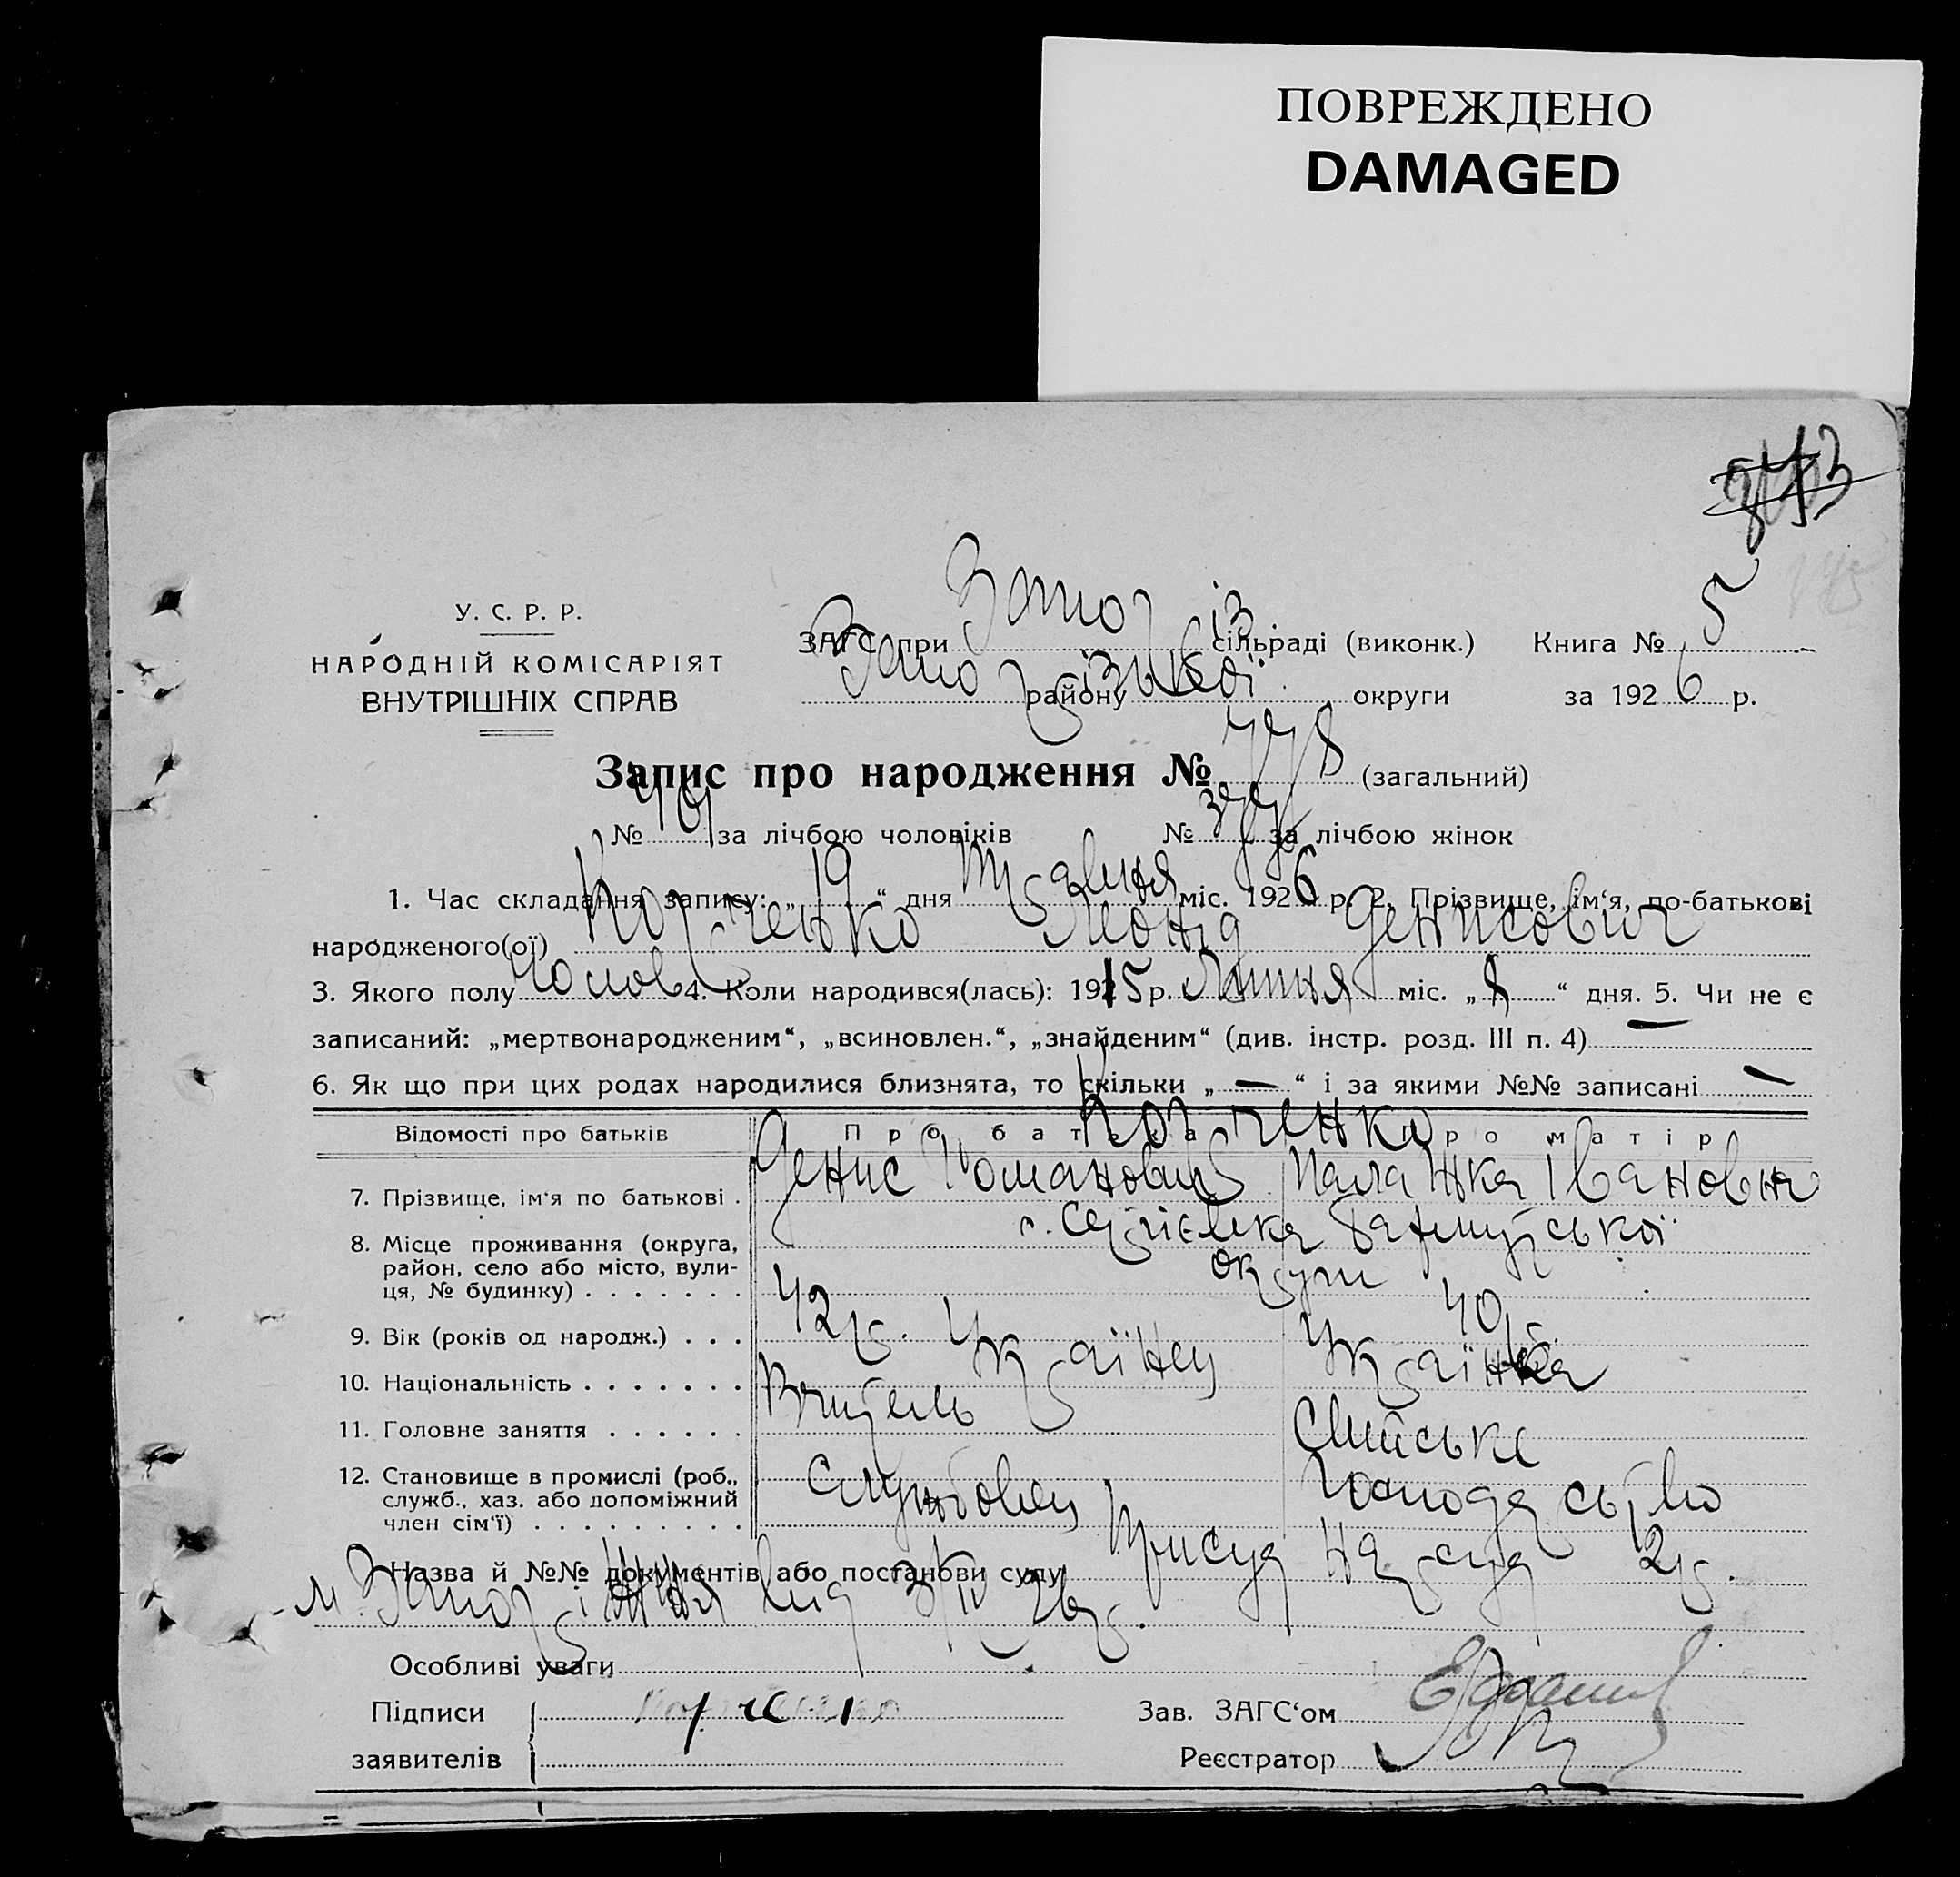 ПОВРЕЖДЕНО
DAMAGED
5
У. С. Р. Р.
НАРОДНІЙ КОМІСАРІЯТ
ВНУТРІШНІХ СПРАВ
ЗАГС при Запоріз. сільраді (виконк.) Книга № 5
района Запорізької округи за 1926 р.
Запис про народження № 778 (загальний)
№ 401 за лічбою чоловіків № 377 за лічбою жінок
1. Час складання запису: „19“ дня Травня міс. 1926 р. 2. Прізвище, ім‘я, по-батькові
народженого(ої) Корченко Леонід Денисович
3. Якого полу Чолов 4. Коли народився(лась): 1915 р. Липня міс. „8“ дня. 5. Чи не є
записаний: „мертвонародженим“, „всиновлен.“, „знайденим“ (див. інстр. розд. III п. 4) —
6. Як що при цих родах народилися близнята, то скільки „—“ і за якими №№ записані —
Відомості про батьків Про батька Про матір
Корченко
7. Прізвище, ім‘я по батькові . Денис Романович Палажка Івановна
8. Місце проживання (округа, район, село або місто, вулиця, № будинку) с. Сергієвка Бахмутської округи
9. Вік (років од народж.) . . . 42 р. 40 р.
10. Національність . . . . . . . Українец Українка
11. Головне заняття . . . . . . Вчитель Сільське
12. Становище в промислі (роб., служб., хаз. або допоміжний член сім‘ї) Службовец Господарство
Назва й №№ документів або постанови суду Присуд Нарсуд 2 р.
м. Запоріжжя від 3/IV 26 р.
Особливі уваги
Підписи
заявителів
Зав. ЗАГС‘ом
Реєстратор